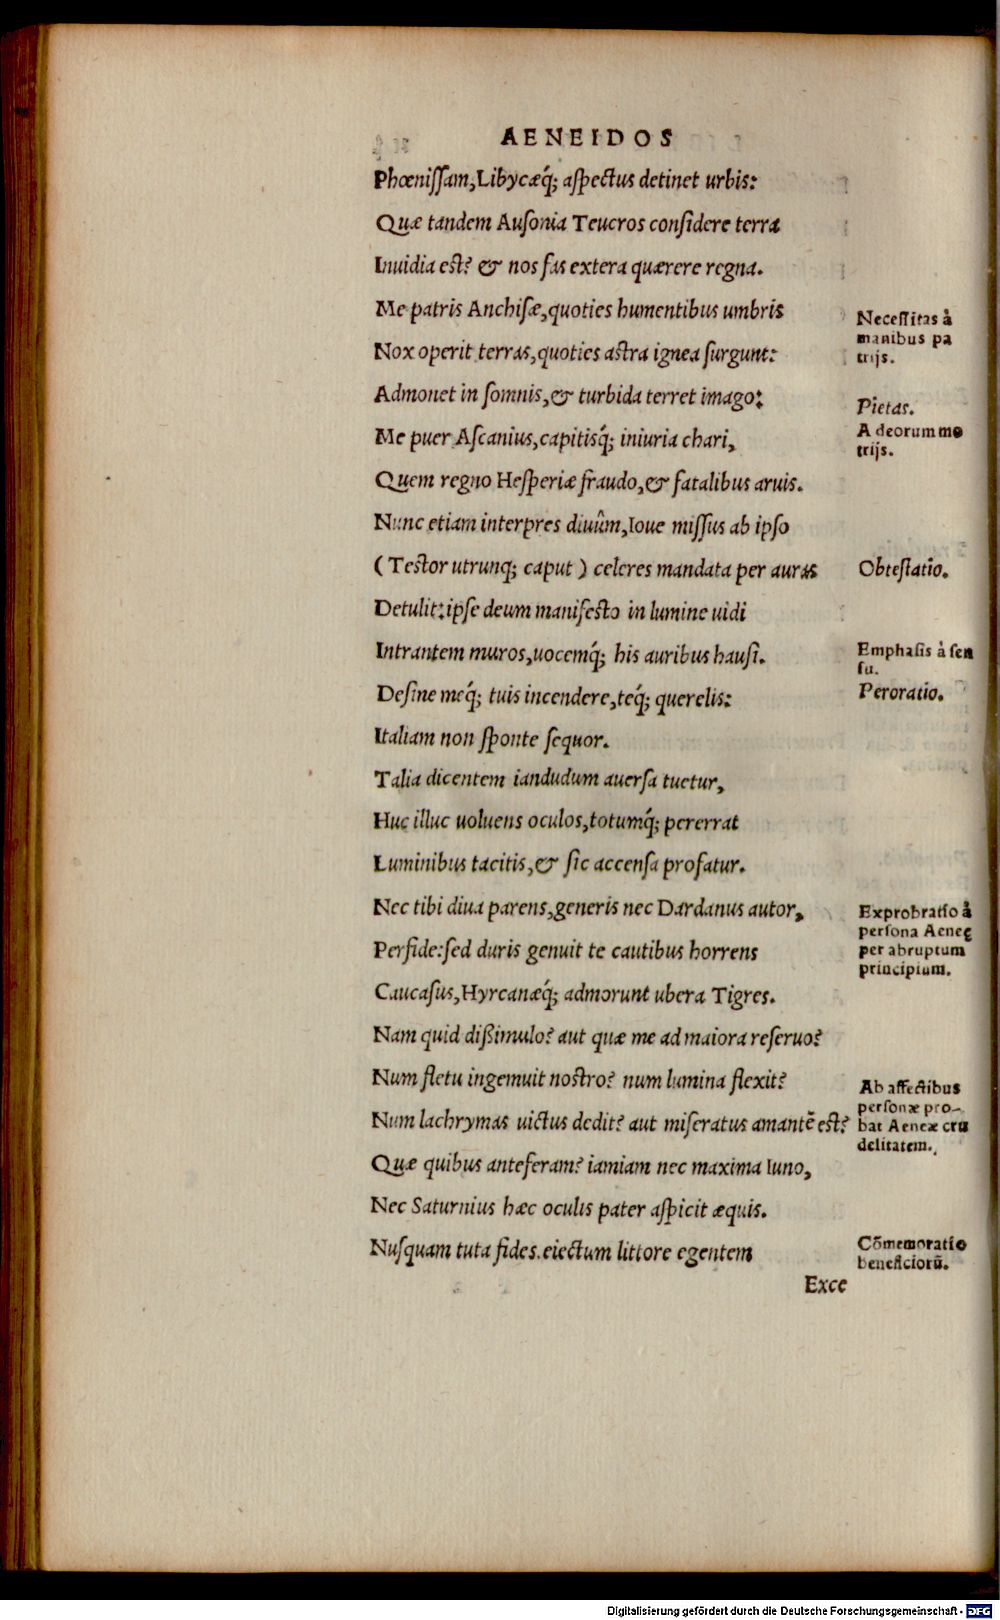 AENEIDOS
Phœniſſam, Libycæq́; aſpectus detinet urbis:
Quæ tandem Auſonia Teucros conſidere terra
Inuidia eſt? & nos fas extera quærere regna.
Me patris Anchiſæ, quoties humentibus umbris
Nox operit terras, quoties aſtra ignea ſurgunt:
Admonet in ſomnis, & turbida terret imago:
Me puer Aſcanius, capitisq́; iniuria chari,
Quem regno Heſperiæ fraudo, & fatalibus aruis.
Nunc etiam interpres diuûm, Ioue miſſus ab ipſo
(Teſtor utrunq; caput) celeres mandata per auras
Detulit: ipſe deum manifeſto in lumine uidi
Intrantem muros, uocemq́; his auribus hauſi.
Deſine meq́; tuis incendere, teq́; querelis:
Italiam non ſponte ſequor.
Talia dicentem iandudum auerſa tuetur,
Huc illuc uoluens oculos, totumq́; pererrat
Luminibus tacitis, & ſic accenſa profatur.
Nec tibi diua parens, generis nec Dardanus autor,
Perfide: ſed duris genuit te cautibus horrens
Caucaſus, Hyrcanæq́; admorunt ubera Tigres.
Nam quid dißimulo? aut quæ me ad maiora reſeruo?
Num fletu ingemuit noſtro? num lumina flexit?
Num lachrymas uictus dedit? aut miſeratus amantē eſt?
Quæ quibus anteferam? iamiam nec maxima Iuno,
Nec Saturnius hæc oculis pater aſpicit æquis.
Nuſquam tuta fides. eiectum littore egentem
Exce
Neceſſitas à
manibus pa
trijs.
Pietas.
A deorum mo
trijs.
Obteſtatio.
Emphaſis à ſen
ſu.
Peroratio.
Exprobratio à
perſona Aeneę
per abruptum
principium.
Ab affectibus
perſonæ pro-
bat Aeneæ cru
delitatem.
Cōmemoratio
beneficiorū.
Digitalisierung gefördert durch die Deutsche Forschungsgemeinschaft - DFG